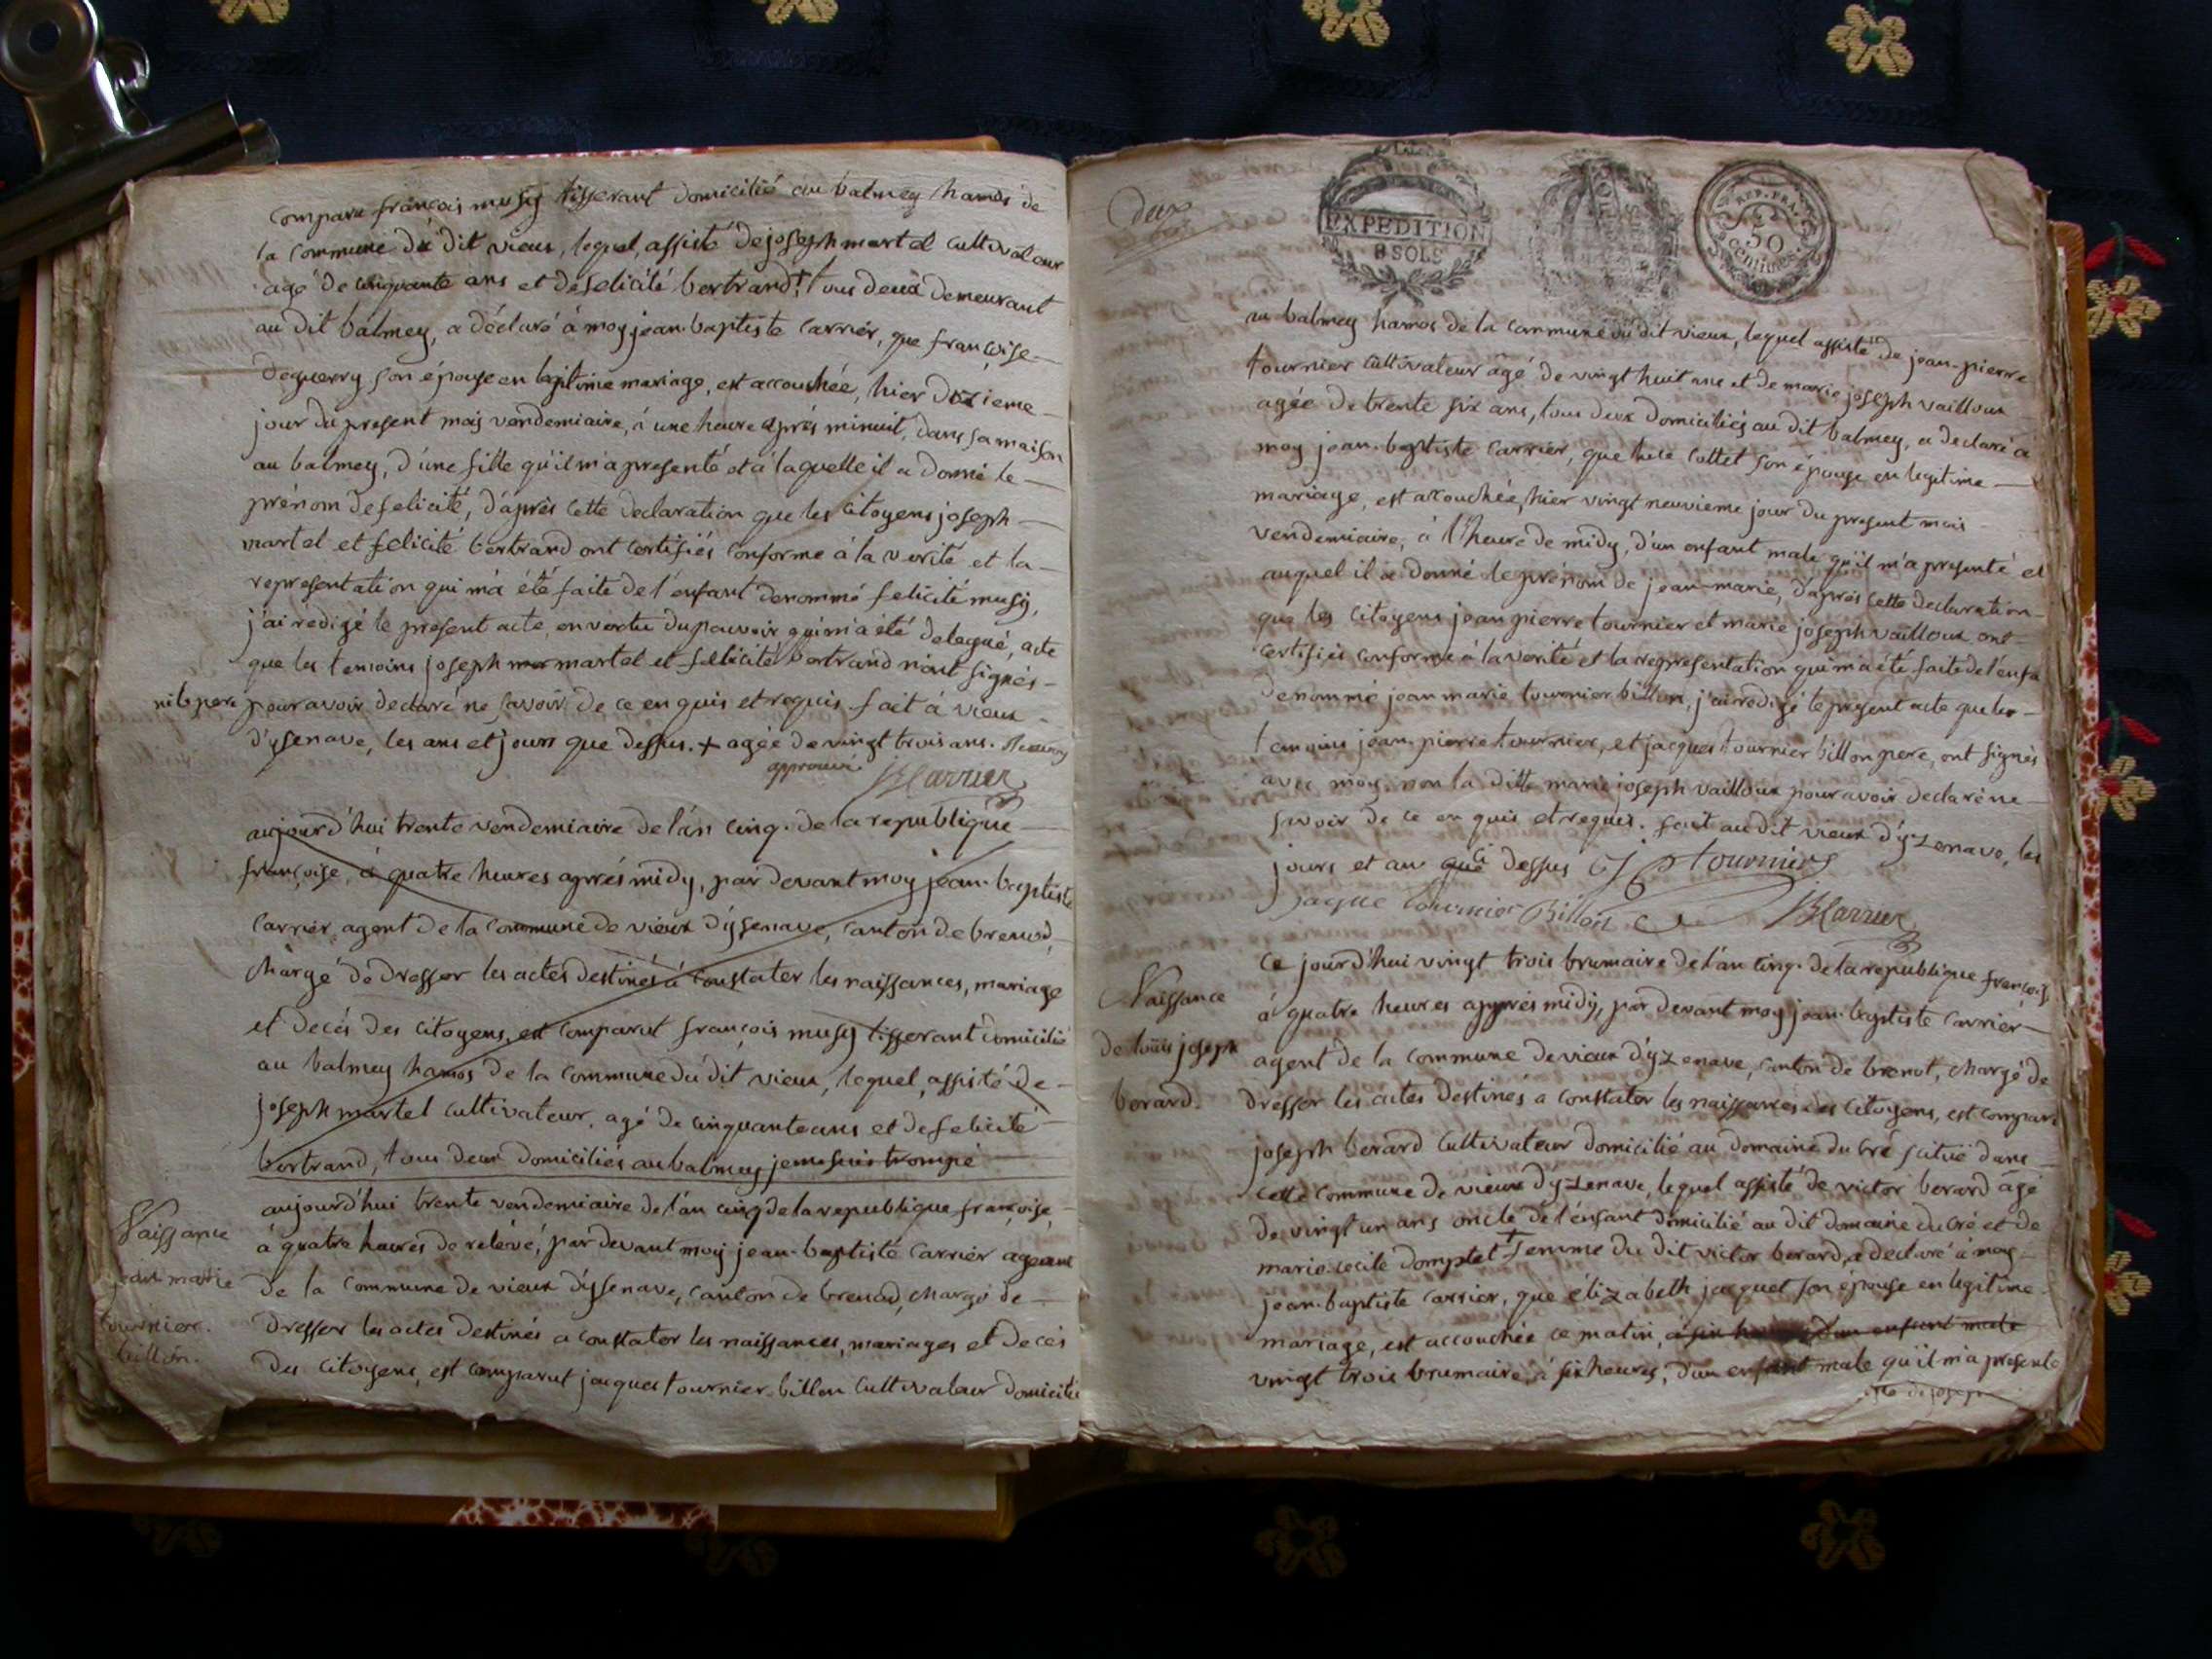 comparu françois musy tisserant domicilié au balmey hamos de
la commune du dit vieux, lequel, assisté de joseph martel cultivateur
agé de cinquante ans et de felicité bertrand + tous deux demeurant
au dit balmey, a déclaré à moy jean-baptiste carrier, que françoise
deguerry son épouse en legitime mariage, est accouchée, hier
jour du present mois vendemiaire, à une heure après minuit, dans sa maison
au balmey, d'une fille qu'il m'a presenté et à laquelle il a donné le
prénom de felicité, d'après cette declaration que les citoyens joseph
martel et felicité bertrand ont certifiés conforme à la verité et la
representation qui m'a été faite de l'enfant denommé felicité musy,
j'ai rédigé le present acte, en vertu du pouvoir qui m'a été delegué, acte
que les temoins joseph martel et felicité bertrand n'ont signés
ni le pere pour avoir declaré ne savoir de ce enquis et requis fait à vieux
d'ysenave, les ans et jours que dessus. + agée de vingt trois ans.
approuvé JBCarrier
aujourd'hui trente vendemiaire de l'an cinq. de la republique
françoise, à quatre heures apprés midy, par devant moy jean-baptiste
carrier agent de la commune de vieux d'ysenave, canton de brenod,
chargé de dresser les actes destinés à constater les naissances, mariage
et decés des citoyens, est comparut françois musy tisserant domicilié
au balmey hamos de la commune du dit vieux, lequel, assisté de
joseph martel cultivateur, agé de cinquante ans et de felicité
bertrand, tous deux domiciliés au balmey je me suis trompé
Naissance
jean marie
tournier.
billon.
aujourd'hui trente vendemiaire de l'an cinq de la republique françoise,
à quatre heures de relevé, par devant moy jean-baptiste carrier agent
de la commune de vieux d'ysenave, canton de brenod, chargé de
dresser les actes destinés a constater les naissances, mariages et decés
des citoyens, est comparut jacques tournier-billon cultivateur domicilié
deux
EXPEDITION
8 SOLS
REP. FRA.
50
centimes
au balmey hamos de la commune du dit vieux, lequel assisté de jean-pierre
tournier cultivateur âgé de vingt huit ans et de marie joseph vailloux
agée de trente six ans, tous deux domiciliés au dit balmey, a declaré à
moy jean-baptiste carrier, que cottet son épouse en legitime
mariage, est accouchée, hier vingt neuvieme jour du present mois
vendemiaire, à l'heure de midy, d'un enfant male qu'il m'a presenté et
auquel il a donné le prénom de jean-marie, d'après cette declaration
que les citoyens jean pierre tournier et marie joseph vailloux ont
certifiés conforme à la verité et la representation qui m'a été faite de l'enfa
denommé jean marie tournier billon, j'ai redigé le present acte que les
temoins jean-pierre tournier, et jacques tournier billon pere, ont signés
avec moy, non la ditte marie joseph vailloux pour avoir declaré ne
savoir de ce en quis et requis. fait au dit vieux d'yzenave, les
jours et an que dessus J p tournier
Jaque tournier Billon JBCarrier
Naissance
de loüis joseph
borard.
Ce jourd'hui vingt trois brumaire de l'an cinq. de la republique françois
à quatre heures apprés midy, par devant moy jean-baptiste carrier
agent de la commune de vieux d'yzenave, canton de brenot, chargé de
dresser les actes destinés a constater les naissances des citoyens, est compar
joseph berard cultivateur domicilié au domaine du cré scitué dans
cette commune de vieux d'yzenave, lequel assisté de victor berard âgé
de vingt un ans oncle de l'enfant domicilié au dit domaine du cré et de
marie cecile domptet + femme du dit victor berard, a declaré à moy
jean-baptiste carrier, que élizabeth jacquet son épouse en legitime
mariage, est accouchée ce matin, à six d'un enfant male
vingt trois brumaire, à six heures, d'un enfant male qu'il m'a presenté